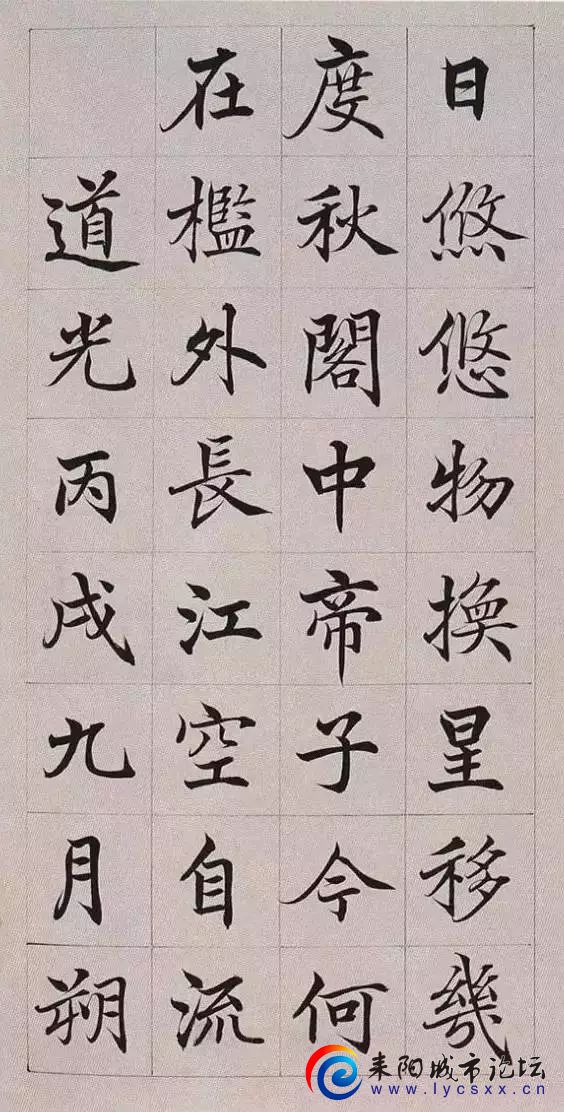 日悠悠物換星移幾
度秋閣中帝子今何
在檻外長江空自流
道光丙戌九月朔
耒阳城市论坛
www.lycsxx.cn